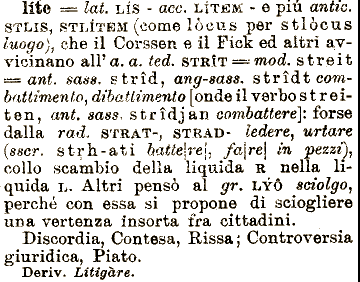 líte = lat. LÍS - acc. LÍTEM - e piú antic.
STLIS, STLÍTEM (come lòcus per stlòcus
luogo), che il Corssen e il Fick ed altri av-
vicinano all' a. a. ted. STRÎT = mod. streit
= ant. sass. strîd, ang-sass. strîdt com-
battimento, dibattimento [onde il verbo strei-
ten, ant. sass. strîdjan combattere]: forse
dalla rad. STRAT-, STRAD- ledere, urtare
(sscr. strh-ati batte[re], fa[re] in pezzi),
collo scambio della liquida R nella li-
quida L. Altri pensò al gr. LYÔ sciolgo,
perché con essa si propone di sciogliere
una vertenza insorta fra cittadini.
Discordia, Contesa, Rissa; Controversia
giuridica, Piato.
Deriv. Litigàre.